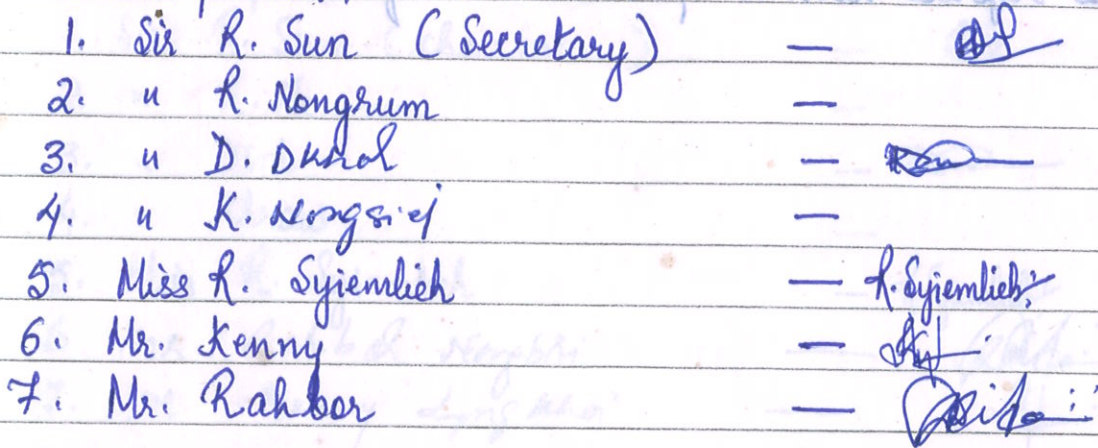 1. Sir R. Sun (Secretary) —
2. " R. Nongrum —
3. " D. Dkhal —
4. " K. Nongsiej —
5. Miss R. Syiemlieh — R. Syiemlieh
6. Mr. Kenny —
7. Mr. Rahbor —